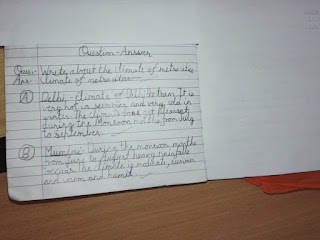 Question-Answer
Ques:- Write about the climate of metro cities
Ans:- Climate of metro cities
A Delhi - climate of Delhi It is
very hot in summer and very cold in
winter. The climate does get pleasant
during the Monsoon months from July
to September.
B Mumbai - During the monsoon months
from June to August heavy rainfall
occurs. The climate is moderate,
and warm and humid